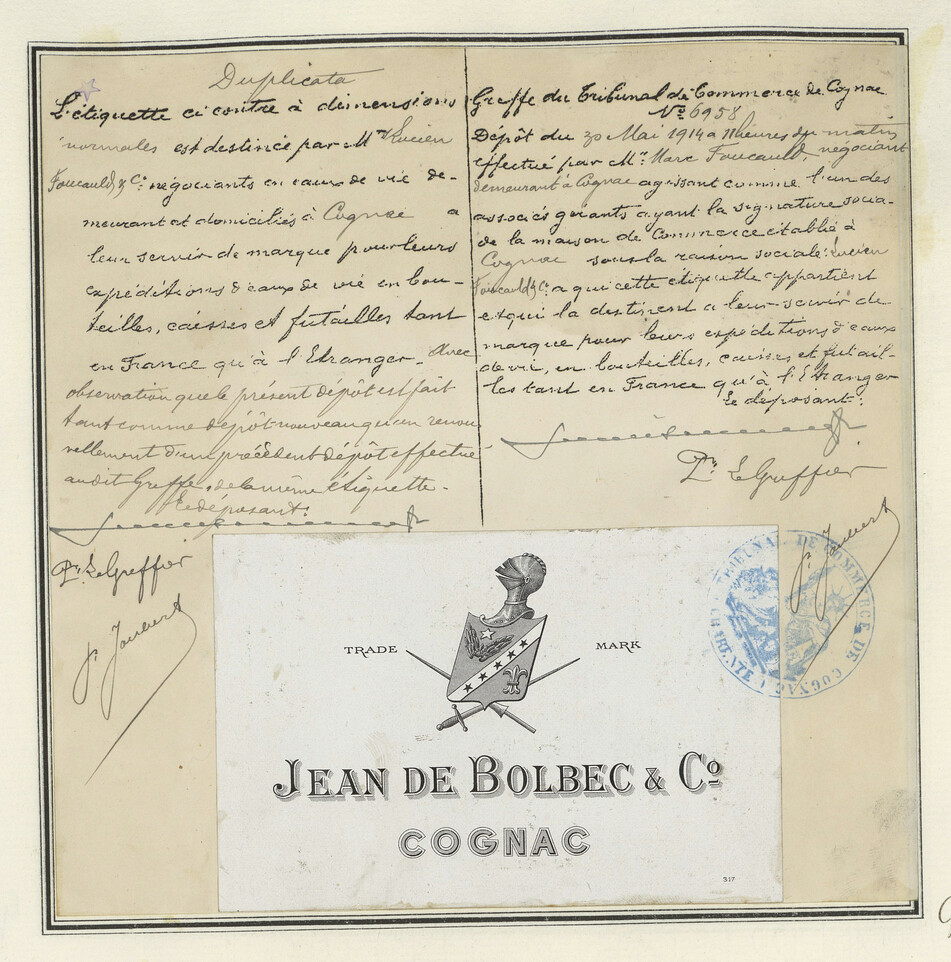 Duplicata
L'étiquette ci contre à dimensions
normales est destinée par Mrs Lucien
Foucauld & Co négociants en eaux de vie de-
meurant et domiciliés à Cognac a
leur servir de marque pour leurs
expéditions d'eaux de vie en bou-
teilles, caisses et futailles tant
en France qu'à l'Etranger. Avec
observation que le présent dépôt est fait
tant comme dépôt nouveau qu'en renou-
vellement d'un précédent dépôt effectué
au dit Greffe, de la même étiquette.
Le déposant:
Pr Le Greffier
Jr Joubert
Greffe du Tribunal de Commerce de Cognac
No 6958
Dépôt du 30 Mai 1914 à 11 heures du matin
effectué par Mr Marc Foucauld, négociant
demeurant à Cognac agissant comme l'un des
associés gérants ayant la signature socia-
de la maison de Commerce établie à
Cognac sous la raison sociale: Lucien
Foucauld & Co a qui cette étiquette appartient
et qui la destinent a leur servir de
marque pour leurs expéditions d'eaux
de vie, en bouteilles, caisses et futail-
les tant en France qu'à l'Etranger
Le déposant:
Pr Le Greffier
Jr Joubert
TRIBUNAL DE COMMERCE DE COGNAC
TRADE MARK
JEAN DE BOLBEC & Co
COGNAC
317